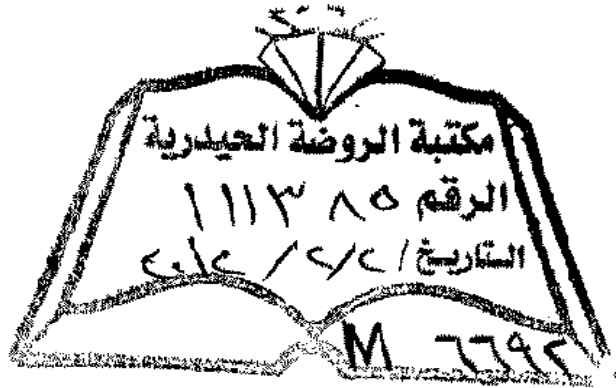 مكتبة الروضة الحيدرية
الرقم ١١١٣٨٥
التاريخ / ٢/٢ / ٢٠١٢
M ٦٦٩٢